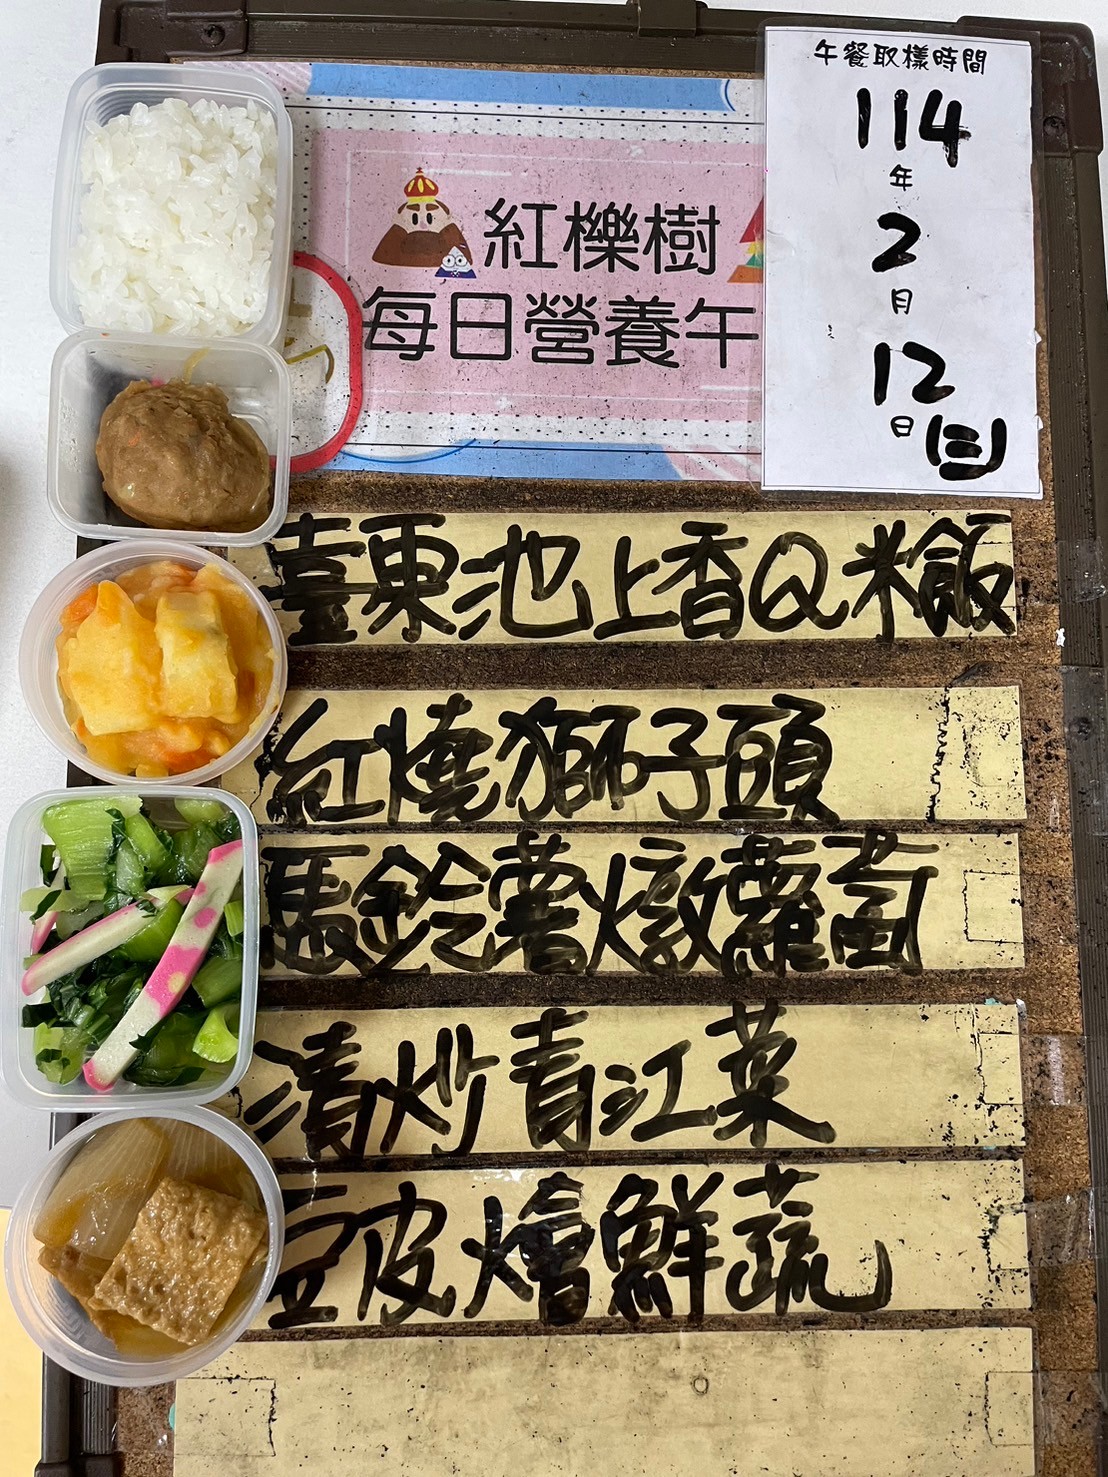 紅櫟樹
每日營養午
午餐取樣時間
114
年
2
月
12
日(三)
臺東池上香Q米飯
紅燒獅子頭
馬鈴薯燉蘿蔔
清炒青江菜
豆皮燴鮮蔬